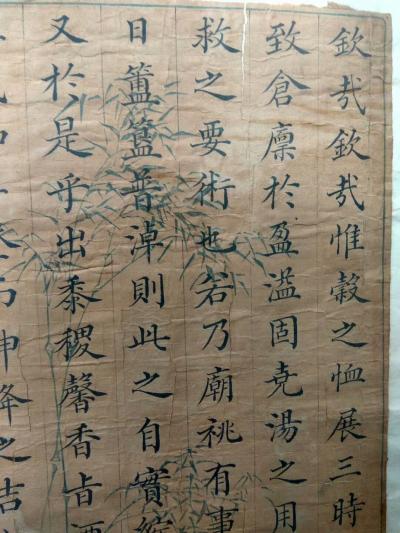 欽哉欽哉惟穀之恤展三時
致倉廩於盈溢固尭湯之用
救之要術也若乃廟祧有事
日簠簋普淖則此之自實
又於是乎出黍稷馨香旨酒
而神降之吉